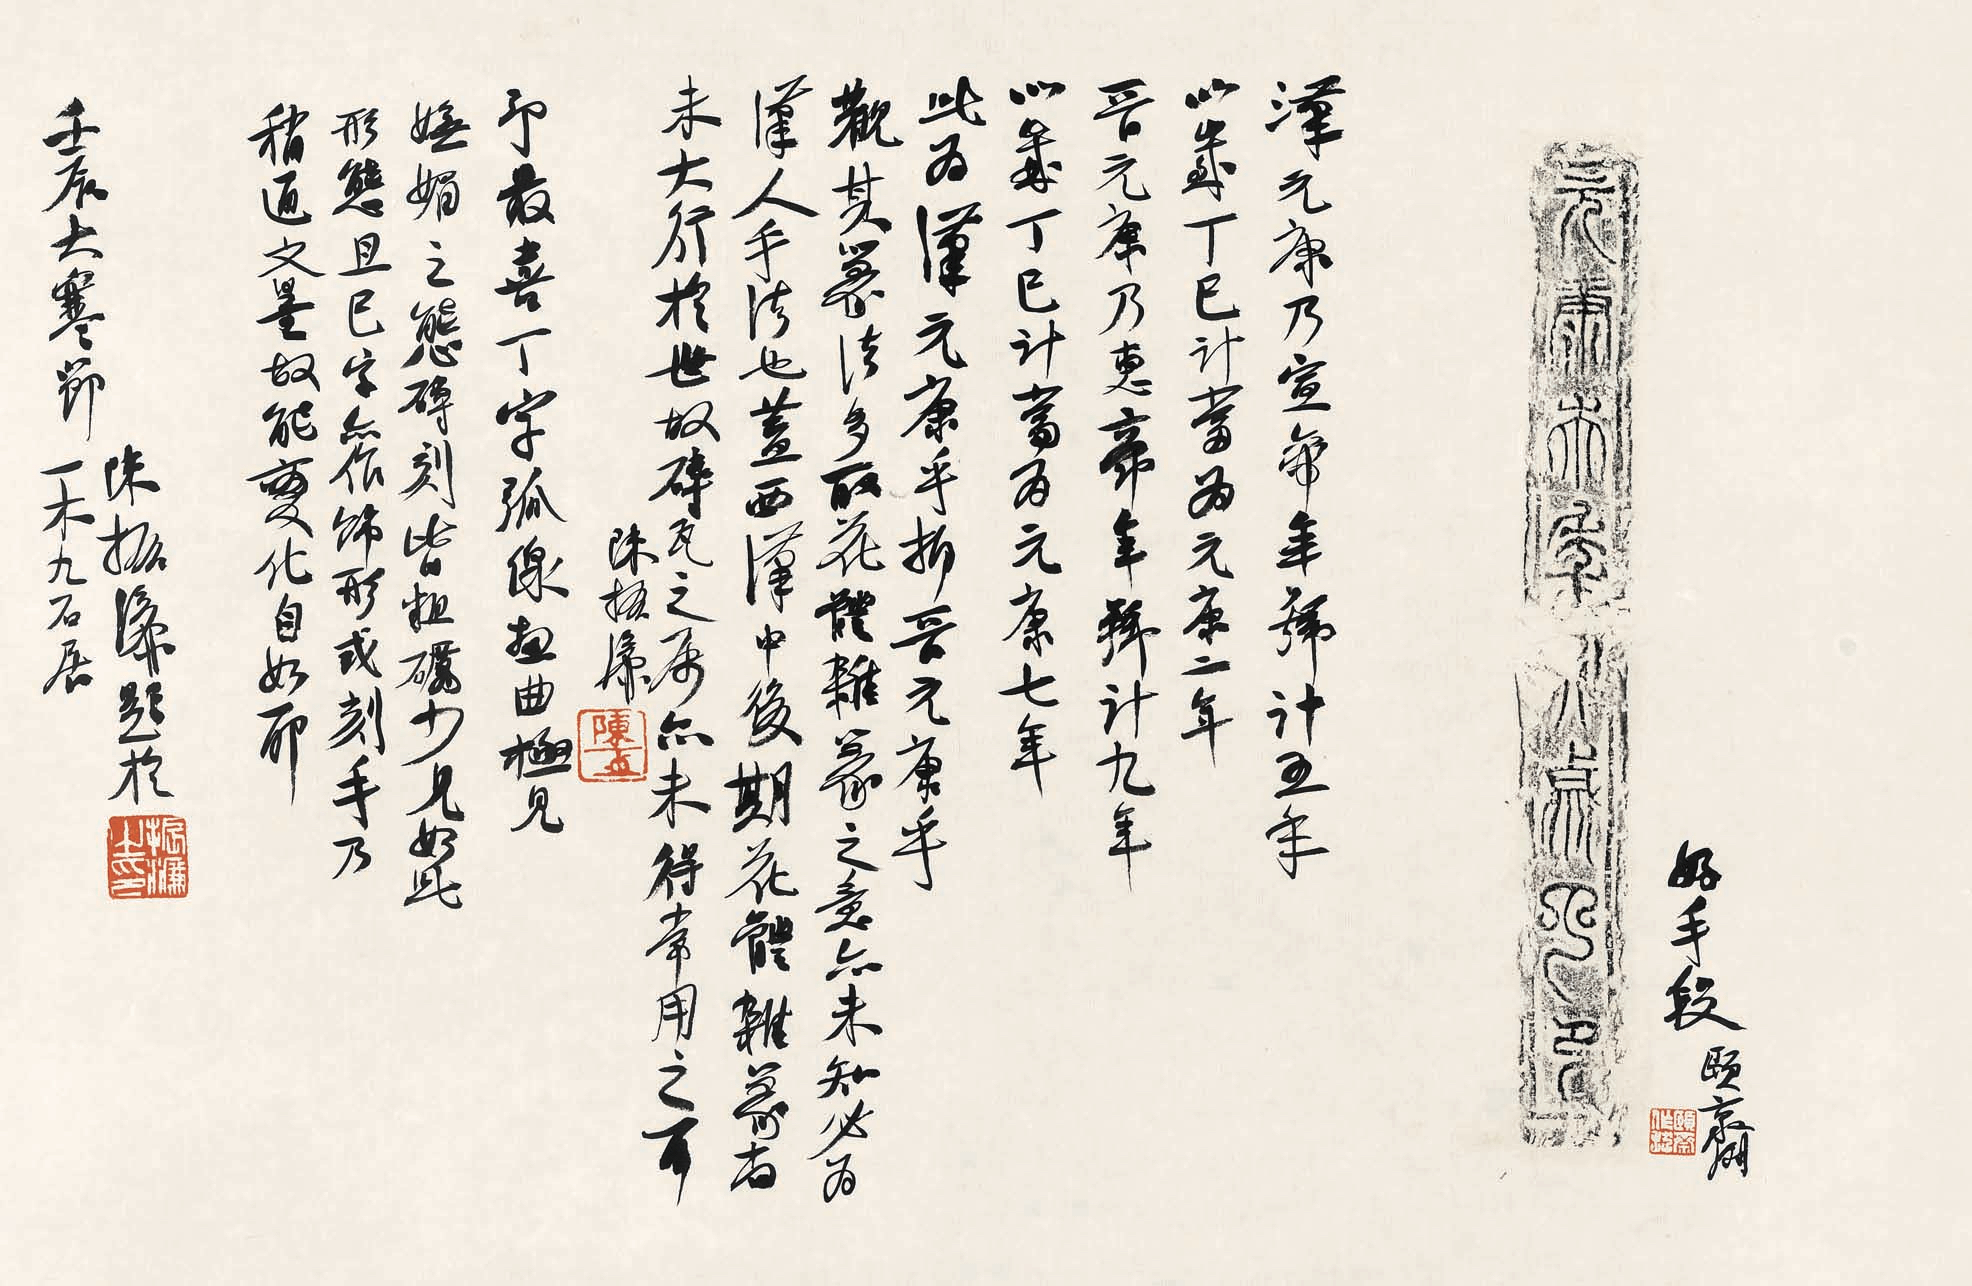 好手段
頤齋
元康七年八歲丁巳
漢元康乃宣帝年號計五年
以歲丁巳計當為元康二年
晋元康乃惠帝年號計九年
以歲丁巳計當為元康七年
此為漢元康乎抑晋元康乎
觀其篆法多取花體雜篆之意亦未知必為
漢人手法也蓋西漢中後期花體雜篆者
未大行於世故磚瓦之屬亦未得常用之耳
陳振濂
予最喜丁字弧線扭曲極見
嫵媚之態磚刻皆粗礪少見如此
形態且巳字亦作飾形或刻手乃
稍通文墨故能變化自如耶
壬辰大寒節
陳振濂題於
一木九石居